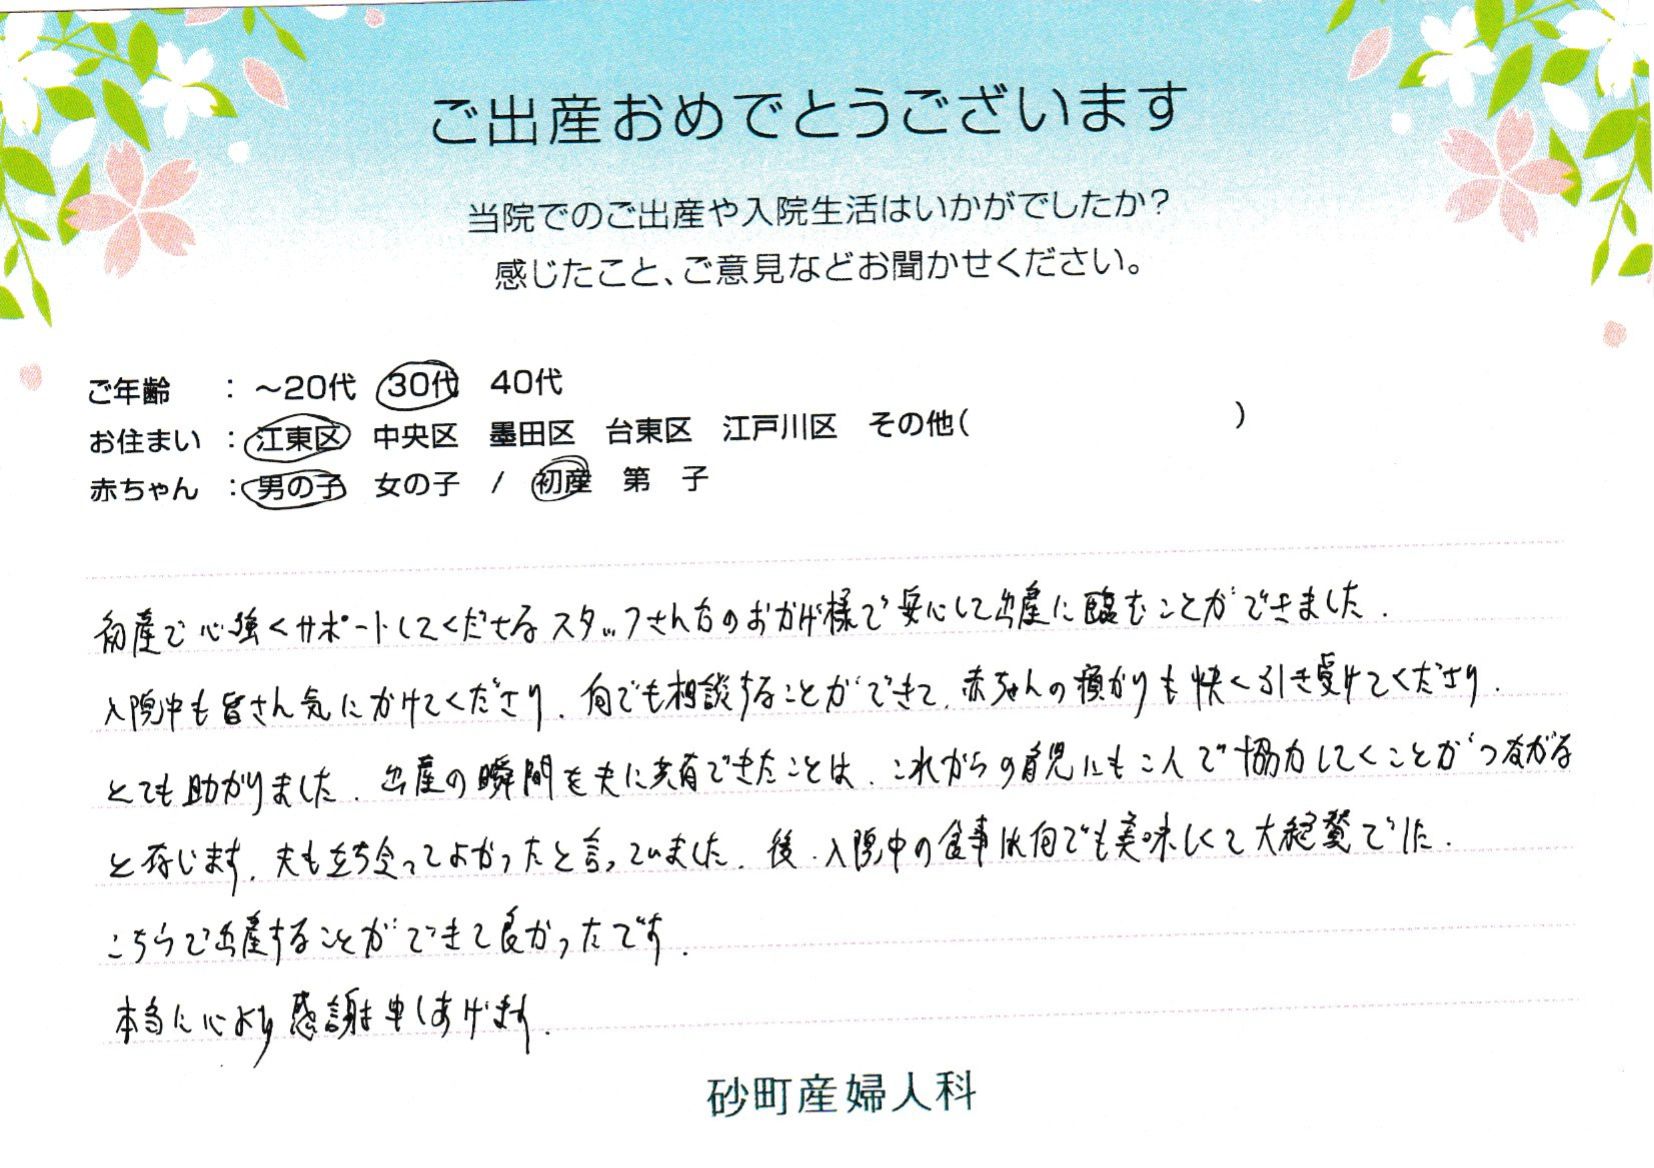 ご出産おめでとうございます
当院でのご出産や入院生活はいかがでしたか?
感じたこと、ご意見などお聞かせください。
ご年齢 : ～20代 30代 40代
お住まい : 江東区 中央区 墨田区 台東区 江戸川区 その他( )
赤ちゃん : 男の子 女の子 / 初産 第 子
初産で心強くサポートしてくださるスタッフさん方のおかげ様で安心して出産に臨むことができました.
入院中も皆さん気にかけてくださり、何でも相談することができて、赤ちゃんの預かりも快く引き受けてくださり、
とても助かりました。出産の瞬間を夫に共有できたことは、これからの育児にも二人で協力してくことがつながる
と存じます。夫も立ち会ってよかったと言っていました。後、入院中の食事は何でも美味しくて大絶賛でした.
こちらで出産することができて良かったです.
本当に心より感謝申しあげます.
砂町産婦人科